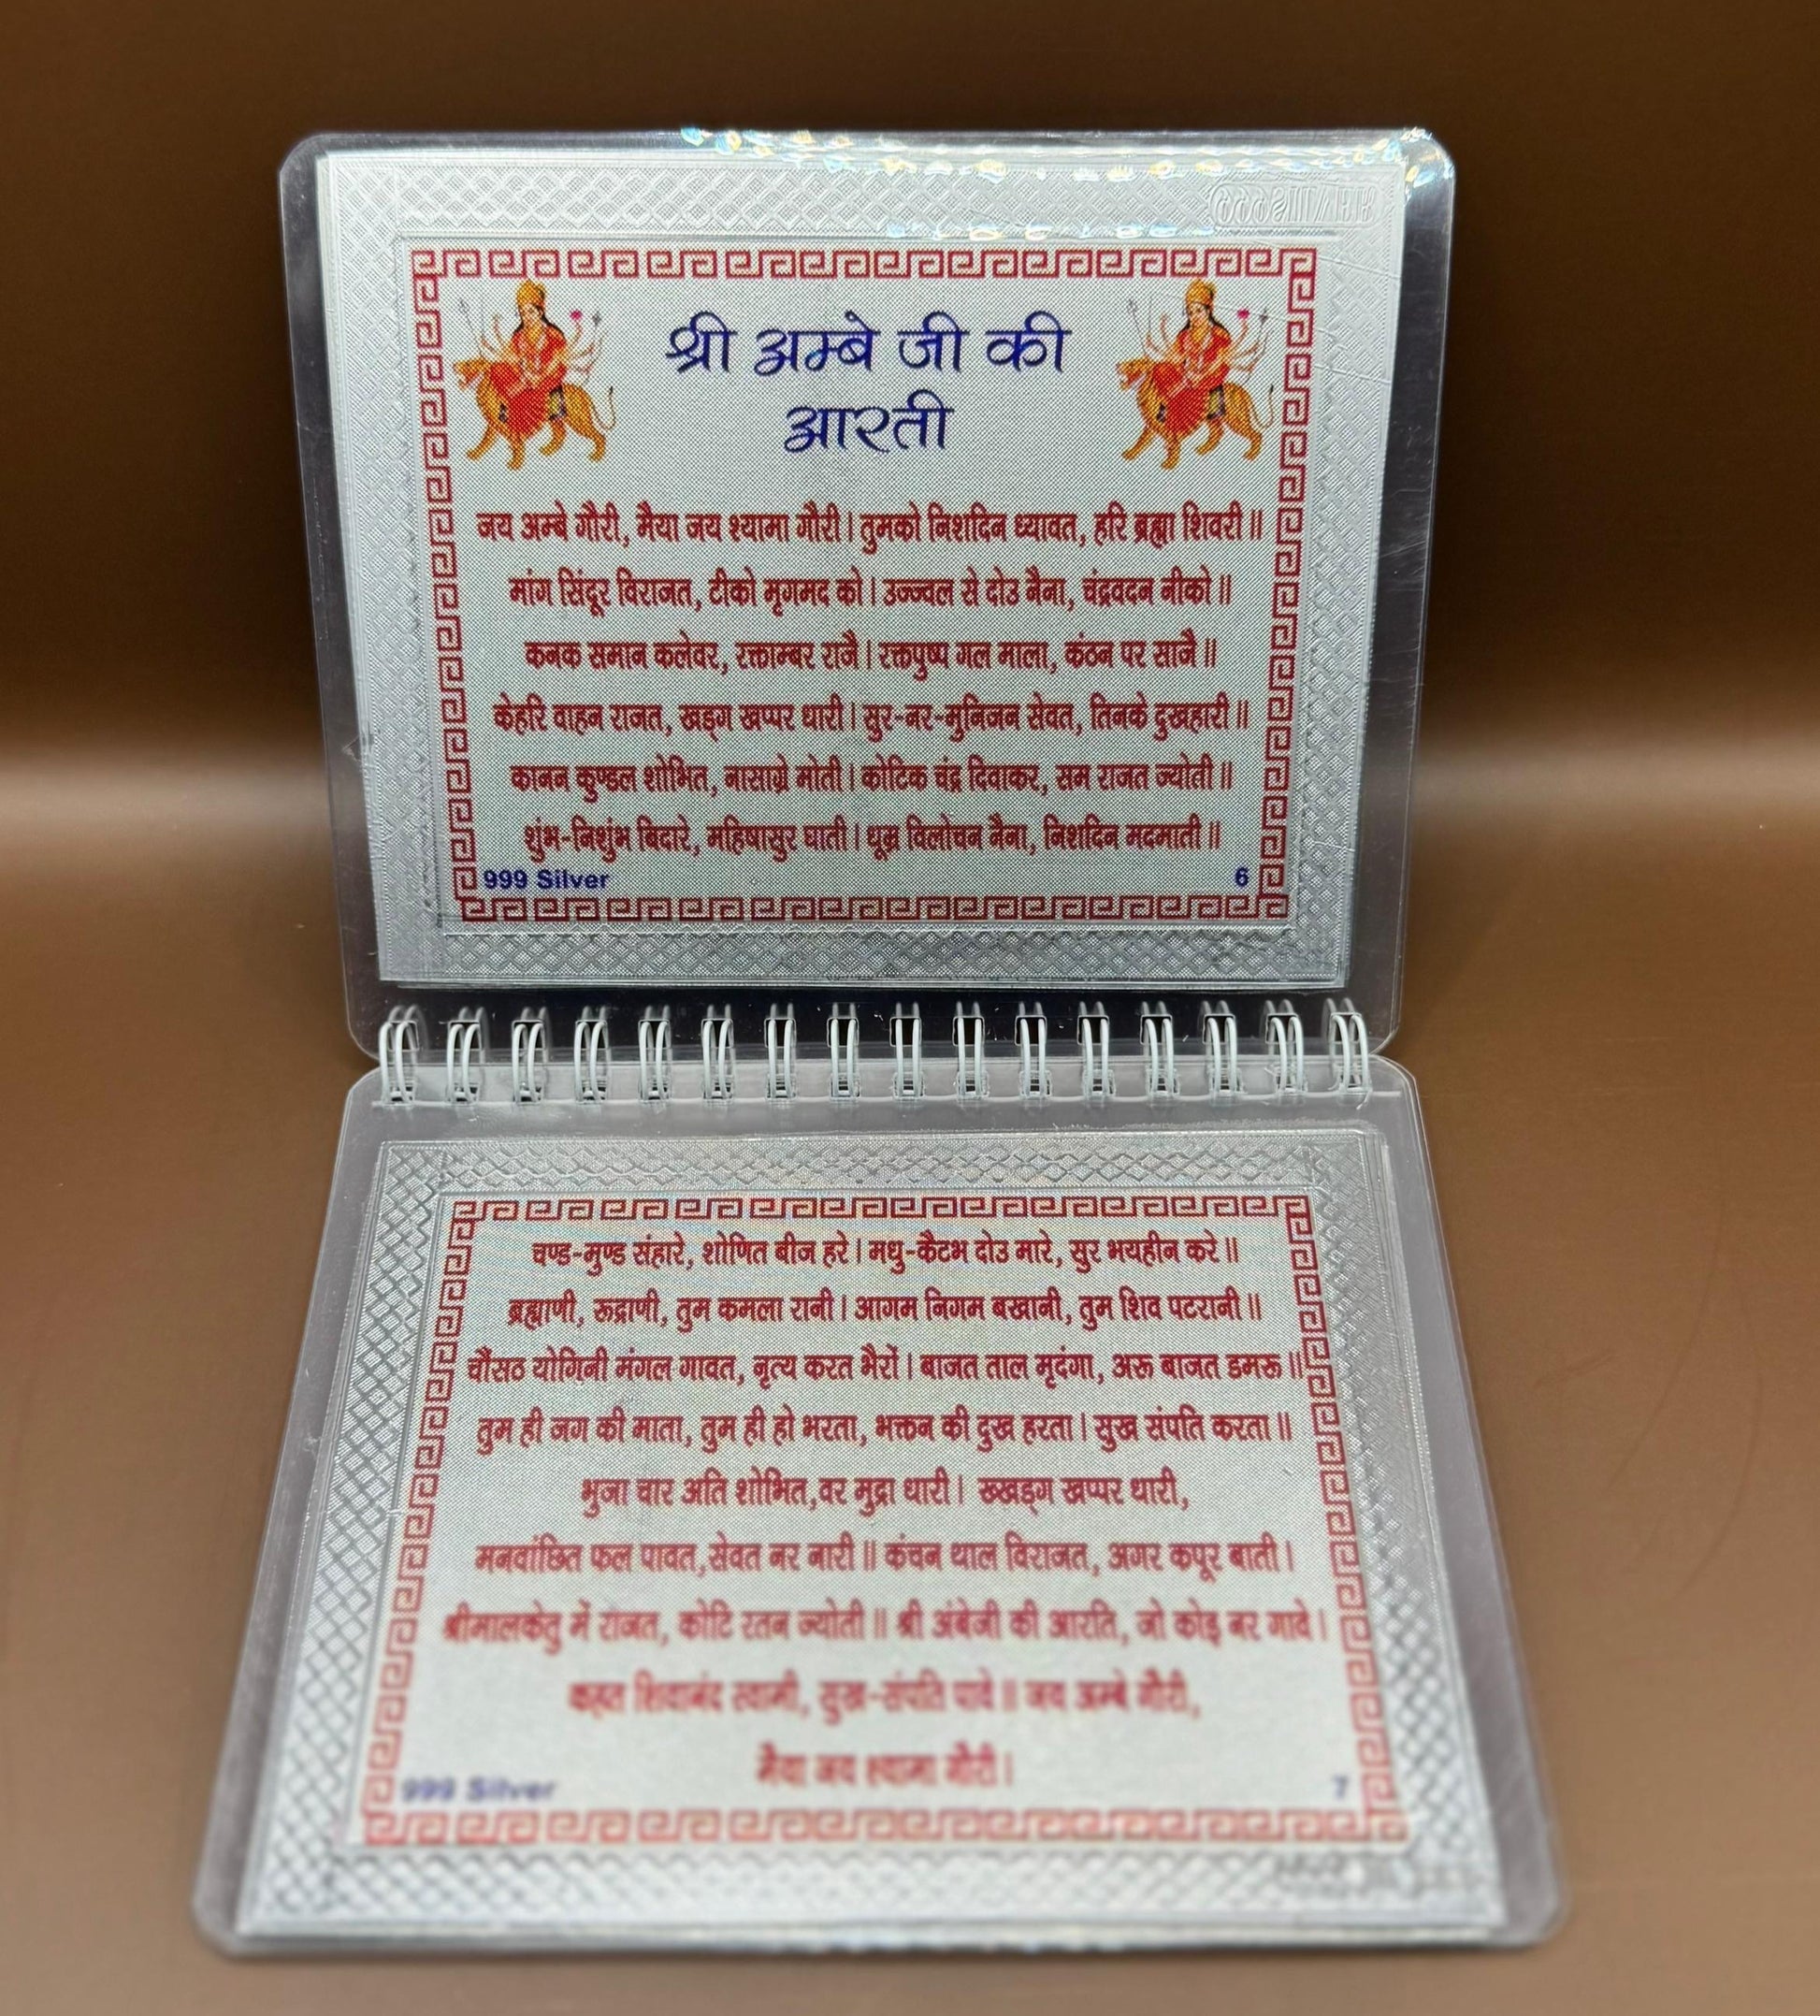 श्री अम्बे जी की
आरती
जय अम्बे गौरी, मैया जय श्यामा गौरी। तुमको निशदिन ध्यावत, हरि ब्रह्मा शिवरी॥
मांग सिंदूर विराजत, टीको मृगमद को। उज्ज्वल से दोउ नैना, चंद्रवदन नीको॥
कनक समान कलेवर, रक्ताम्बर राजै। रक्तपुष्प गल माला, कंठन पर साजै॥
केहरि वाहन राजत, खड्ग खप्पर धारी। सुर-नर-मुनिजन सेवत, तिनके दुखहारी॥
कानन कुण्डल शोभित, नासाग्रे मोती। कोटिक चंद्र दिवाकर, सम राजत ज्योती॥
शुंभ-निशुंभ बिदारे, महिषासुर घाती। धूम्र विलोचन नैना, निशदिन मदमाती॥
999 Silver 6
चण्ड-मुण्ड संहारे, शोणित बीज हरे। मधु-कैटभ दोउ मारे, सुर भयहीन करे॥
ब्रह्माणी, रूद्राणी, तुम कमला रानी। आगम निगम बखानी, तुम शिव पटरानी॥
चौंसठ योगिनी मंगल गावत, नृत्य करत भैरों। बाजत ताल मृदंगा, अरू बाजत डमरू॥
तुम ही जग की माता, तुम ही हो भरता, भक्तन की दुख हरता। सुख संपति करता॥
भुजा चार अति शोभित,वर मुद्रा धारी। ख्खड्ग खप्पर धारी,
मनवांछित फल पावत,सेवत नर नारी॥ कंचन थाल विराजत, अगर कपूर बाती।
श्रीमालकेतु में राजत, कोटि रतन ज्योती॥ श्री अंबेजी की आरति, जो कोइ नर गावे।
कहत शिवानंद स्वामी, सुख-संपति पावे॥ जय अम्बे गौरी,
मैया जय श्यामा गौरी।
999 Silver 7